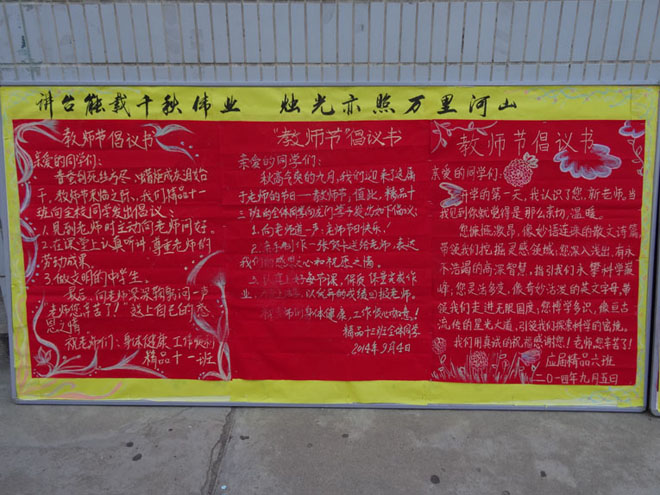 讲台能载千秋伟业 烛光亦照万里河山
教师节倡议书
亲爱的同学们:
春蚕到死丝方尽,蜡炬成灰泪始
干,教师节来临之际,我们精品十一
班向全校同学发出倡议:
1、见到老师时主动向老师问好。
2、在课堂上认真听讲,尊重老师的
劳动成果。
3、做文明的中学生。
最后,向老师深深鞠躬问一声
老师您辛苦了!送上自己的感
恩之情
祝老师们:身体健康 工作顺利
精品十一班
"教师节"倡议书
亲爱的同学们:
秋高气爽的九月,我们迎来了这属
于老师的节日—教师节,值此,精品十
三班的全体同学
1、向老师道一声:老师节日快乐!
2、亲手制作一张贺卡送给老师,表达
我们的感恩之心和祝愿之情。
3、认真上好每节课,保质保量完成作
业,以优异的成绩回报老师。
祝老师们身体健康,工作顺心如意!
精品十三班全体同学
2014年9月4日
教师节倡议书
亲爱的同学们:
升学的第一天,我认识了您,新老师。当
我见到你就觉得是那么亲切,温暖。
您慷慨激昂,像妙语连珠的散文诗篇,
带领我们挖掘灵感领域;您深入浅出,有永
不浩竭的高深智慧,指引我们永攀科学巅
峰;您灵活多变,像奇妙活泼的英文字母,带
领我们走进无限国度;您博学多识,像亘古
流传的星光大道,引领我们探索科学的奥境。
我们用真诚的祝福感谢您!老师,您辛苦了!
应届精品六班
二〇一四年九月五日